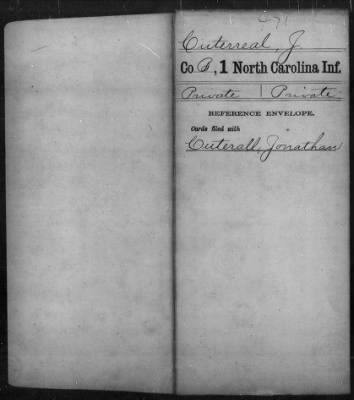 471
Cuterreal, J.
Co. B, 1 North Carolina Inf.
Private | Private
REFERENCE ENVELOPE.
Cards filed with
Cuterall, Jonathan